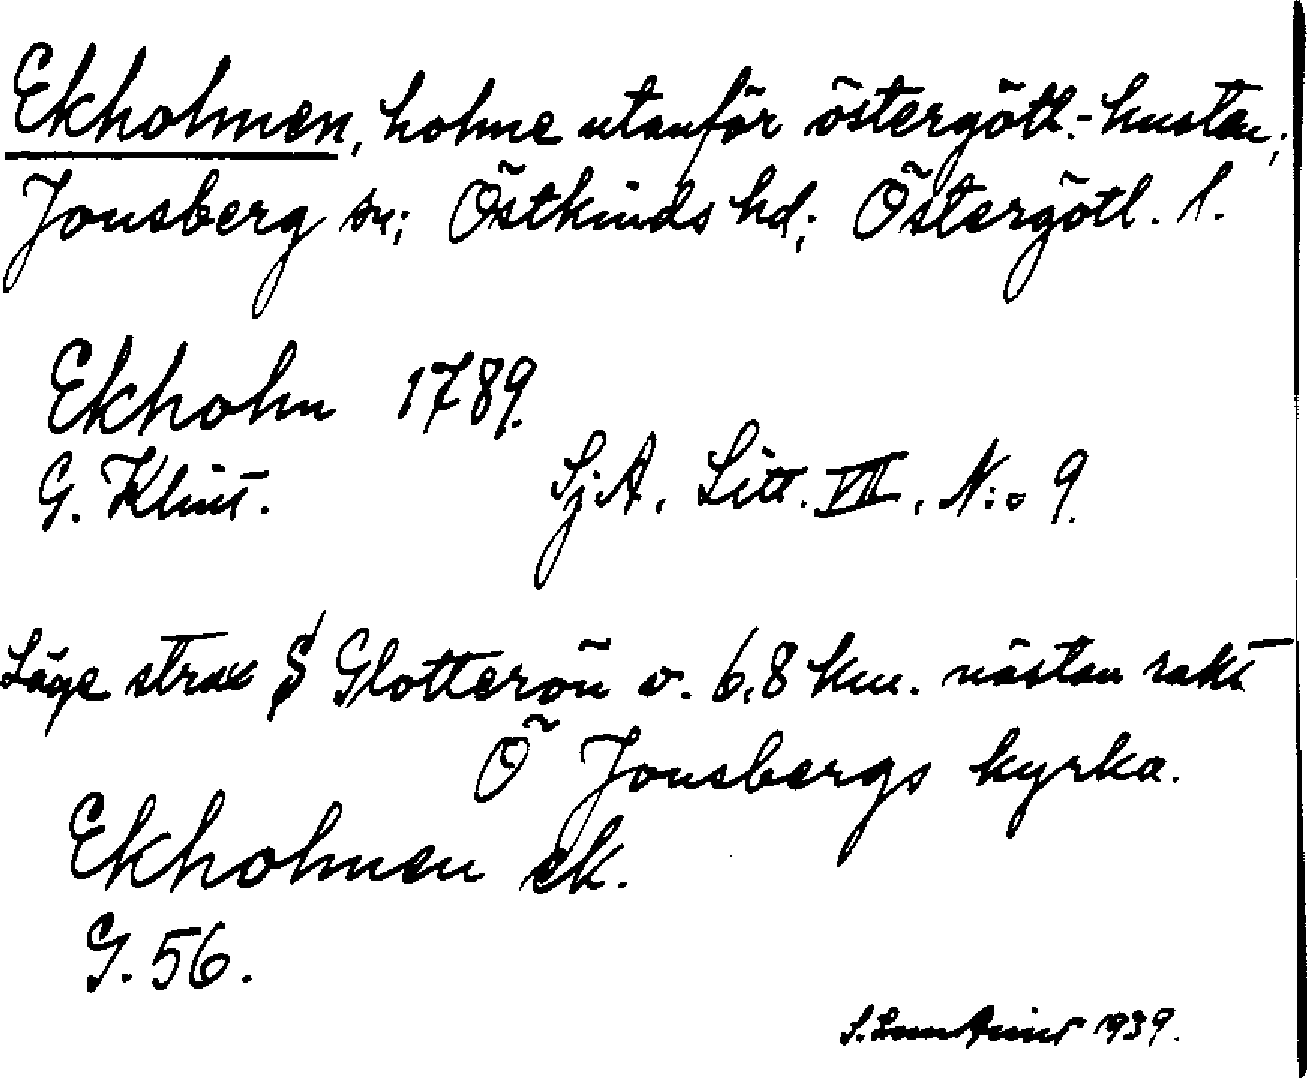 Ekholmen, holme utanför östergötl.-kusten;
Jonsberg sn; Östkinds hd; Östergötl. l.
Ekholm 1789.
G. Klint. Sj.A. Litt. VII, N:o 9.
Läge strax S Glotterön o. 6,8 km. nästan rakt
Ö Jonsbergs kyrka.
Ekholmen ek.
G. 56.
S. 1939.